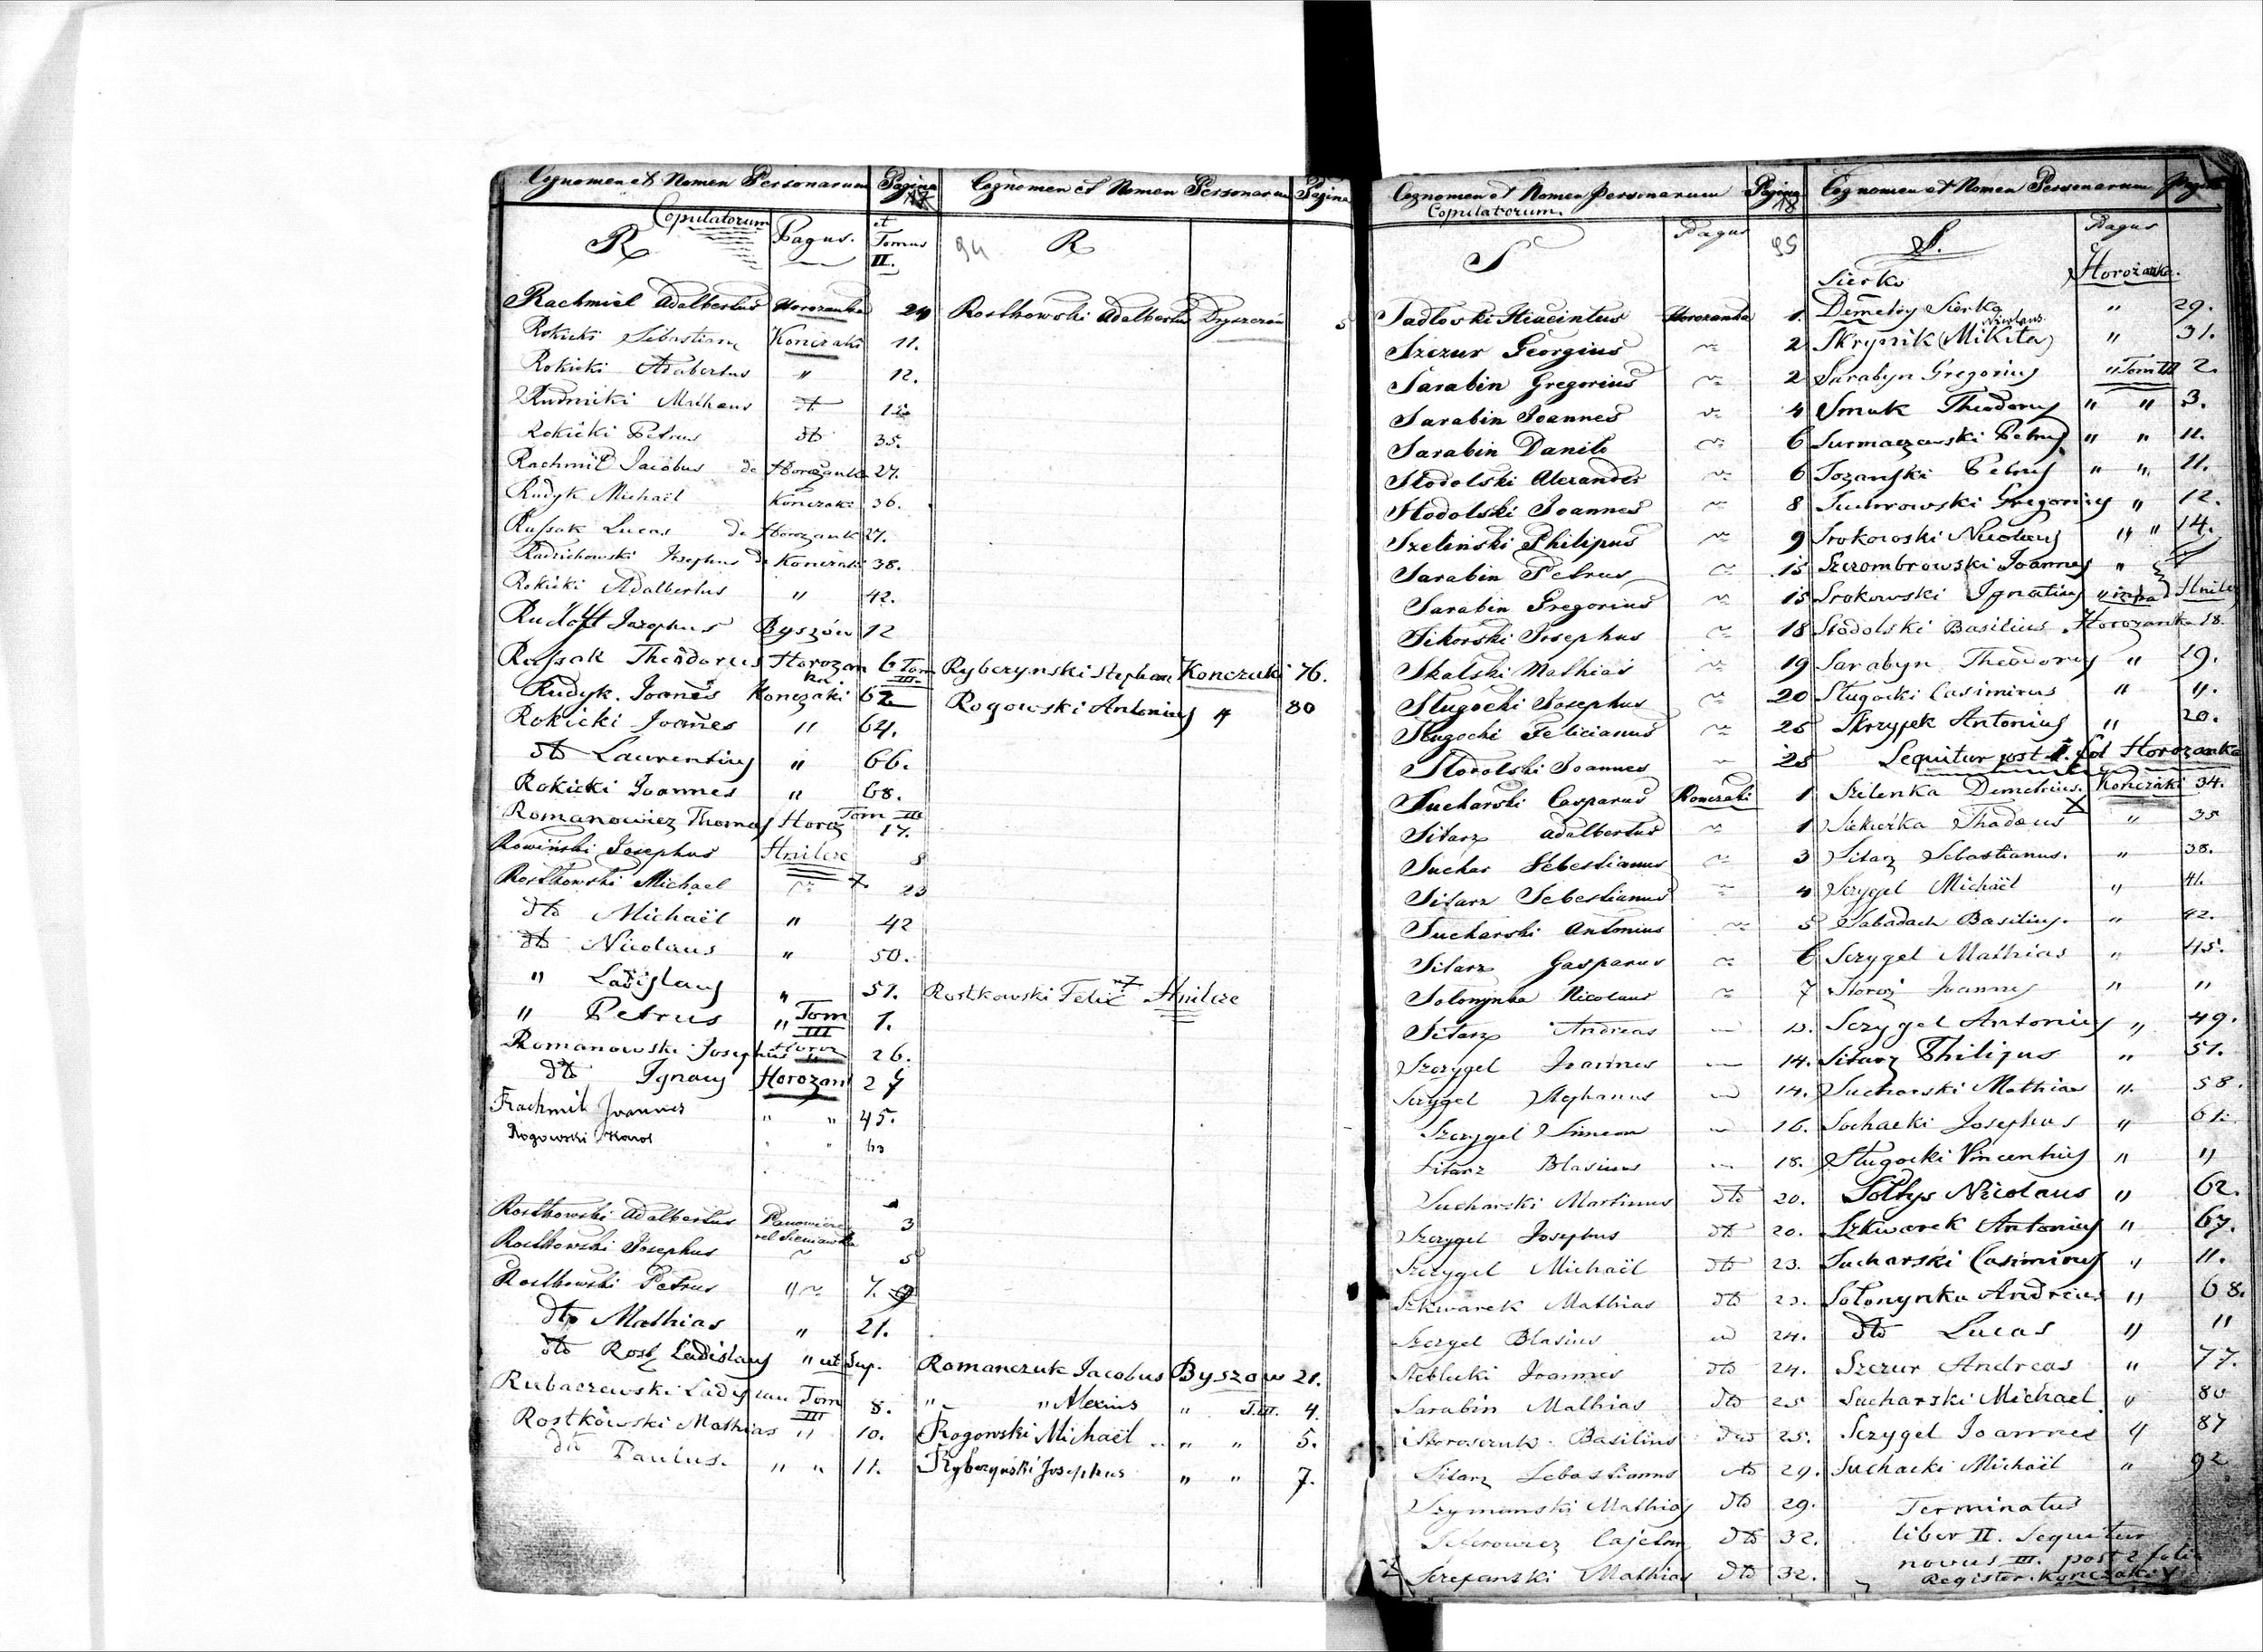 Cognomen et Nomen Personarum Pagina
Copulatorum
R Pagus. et Tomus II.
Rachmiel Adalbertus Horozanka 24
Rokicki Sebastian Konczaki 11.
Rokicki Adalbertus " 12.
Rudnicki Matheus dt 12
Rokicki Petrus dt 35.
Rachmil Jacobus de Horozanka 27.
Rudyk Michaël Konczaki 36.
Russak Lucas de Horozank 27.
Radzichowski Josephus de Konczaki 38.
Rokicki Adalbertus " 42.
Rudolft Josephus Byszów 12
Russak Theodorus Horozanka 6 Tom III.
Rudyk Joannes Konczaki 62
Rokicki Joannes " 64.
dto Laurentius " 66.
Rokicki Joannes " 68.
Romanowicz Thomas Horoz Tom III 17.
Rowiński Josephus Hnilcze 8
Rostkowski Michael ~ 23
dto Michaël " 42
dto Nicolaus " 50.
" Ladislaus " 51.
" Petrus " Tom III 1.
Romanowski Josephus Horoz 26.
dto Ignacy Horozan 27
Rachmil Joannes " " 45.
Rogowski Karol " " 60
Rostkowski Adalbertus Panowice vel Sieniawka 3
Rostkowski Josephus ~ 5
Rostkowski Petrus " ~ 7. 9
dto Mathias " 21.
dto Rost Ladislaus " ut Sup.
Rubaczewski Ladislau Tom III 8.
Rostkowski Mathias " 10.
dto Paulus. " " 11.
Cognomen et Nomen Personarum Pagina
94 R
Rostkowski Adalbertus Dryszczów 5
Ryberzynski Stephan Konczaki 76.
Rogowski Antonius " 80
Rostkowski Felix Hnilcze
Romanczuk Jacobus Byszow 21.
" " Alexius " T.III. 4.
Rogowski Michaël " " 5.
Ryberzyński Josephus " " 7.
Cognomen et Nomen personarum Pagina 18
Copulatorum.
S Pagus 95
Sadlowski Hiacintus Horozanka 1.
Szczur Georgius ~ 2
Sarabin Gregorius ~ 2
Sarabin Joannes ~ 4
Sarabin Danilo ~ 6
Stodolski Alexander ~ 6
Stodolski Joannes ~ 8
Szeliński Philipus ~ 9
Sarabin Petrus ~ 15
Sarabin Gregorius ~ 15
Sikorski Josephus ~ 18
Skalski Mathias ~ 19
Slugocki Josephus ~ 20
Slugocki Felicianus ~ 25
Stodolski Joannes ~ 28
Sucharski Casparus Konczaki 1
Sitarz Adalbertus ~ 1
Suchar Sebestianus ~ 3
Sitarz Sebestianus ~ 4
Sucharski Antonius ~ 5
Sitarz Gasparus ~ 6
Solonynka Nicolaus ~ 7
Sitarz Andreas ~ 13.
Szczygel Joannes ~ 14.
Sczygel Stephanus ~ 14.
Szczygel Simeon ~ 16.
Sitarz Blasius ~ 18.
Sucharski Martinus dto 20.
Szczygel Josephus dt 20.
Szczygel Michaël dto 23.
Szkwarek Mathias dto 23.
Szczygel Blasius ~ 24.
Steblecki Joannes dto 24.
Sarabin Mathias dto 25
Storosczuk Basilius dto 25.
Sitarz Sebastianus dto 29.
Szymanski Mathias dto 29.
Seferowicz Cajetan dto 32.
Szczepanski Mathias dto 32.
Cognomen et Nomen Personarum Pagina
S. Pagus
Sierko Horożanka.
Demetry Sierka " 29.
Skrypnik (Mikita) Nicolaus " 31.
Sarabyn Gregorius " Tom III 2.
Smuk Theodorus " " 3.
Surmaczewski Petrus " " 11.
Sozanski Petrus " " 11.
Suchrowski Gregorius " 12.
Srokowski Nicolaus " " 14.
Szczombrowski Joannes " "
Srokowski Ignatius " Hnilcz
Stodolski Basilius Horozanka 18.
Sarabyn Theodorus " 19.
Slugocki Casimirus " ".
Skrzypek Antonius " 20.
Sequitur post 1. fol Horozanka
Szilenka Demetrius. Konczaki 34.
Siekierka Thadeus " 35
Sitarz Sebastianus. " 38.
Sczygel Michaël " 41.
Sabadach Basilius. " 42.
Sczygel Mathias " 45.
Storoz Joannes " "
Sczygel Antonius " 49.
Sitarz Philipus " 51.
Sucharski Mathias " 58.
Suchacki Josephus " 61.
Slugocki Vincentius " "
Soltys Nicolaus " 62.
Szkwarek Antonius " 67.
Sucharski Casimirus " 11.
Solonynka Andreas " 68.
dto Lucas " "
Szczur Andreas " 77.
Sucharski Michael " 80
Sczygel Joannes " 87
Suchacki Michaël " 92
Terminatus
liber II. Sequitur
novus III. post 2 folia
Register. Konczaki